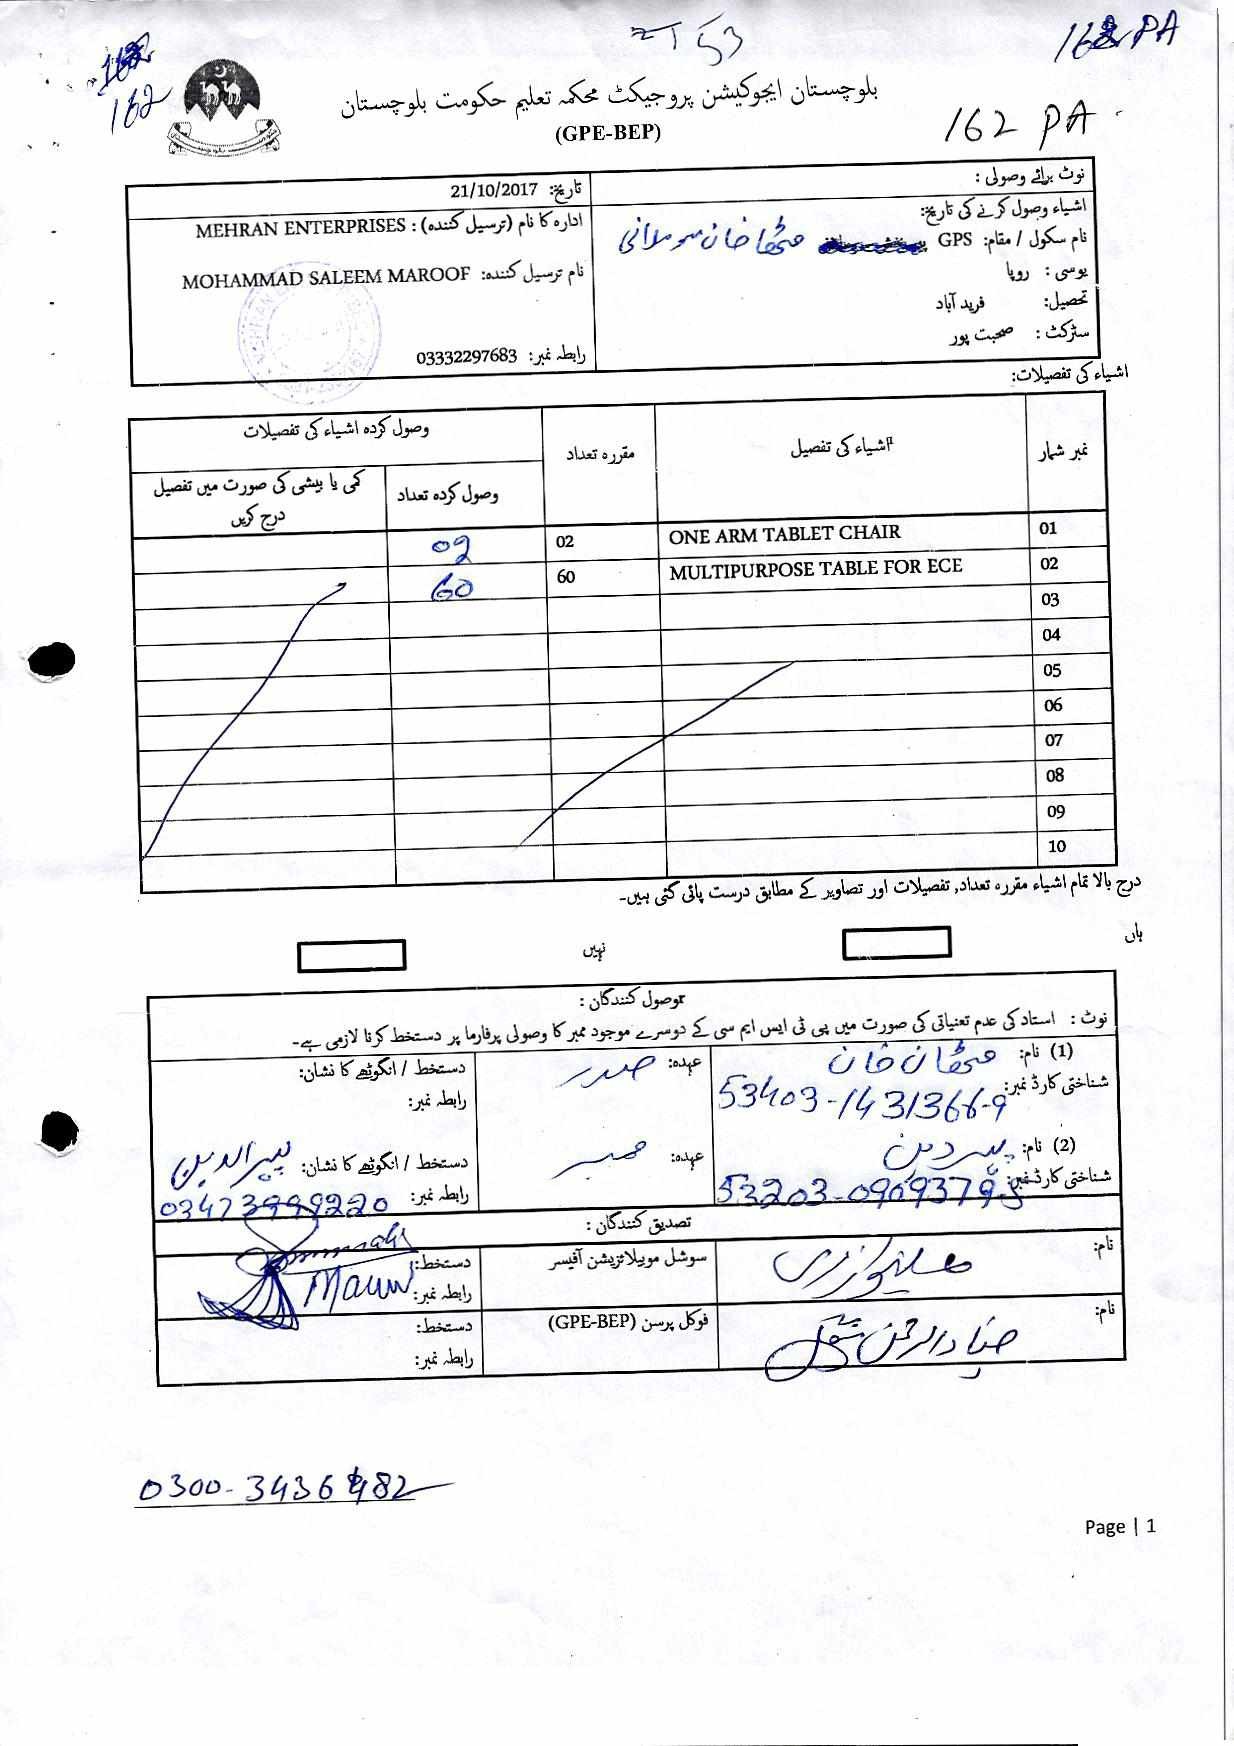 162
162 PA
53
162
162 PA
بلوچستان ایجوکیشن پروجیکٹ محکمہ تعلیم حکومت بلوچستان
(GPE-BEP)
نوٹ برائے وصولی :
تاریخ: 21/10/2017
اشیاء وصول کرنے کی تاریخ:
ادارہ کا نام (ترسیل کنندہ) : MEHRAN ENTERPRISES
نام سکول / مقام: GPS
نام ترسیل کنندہ: MOHAMMAD SALEEM MAROOF
یوسی : روپا
تحصیل: فرید آباد
سٹرکٹ : صحبت پور
رابطہ نمبر: 03332297683
اشیاء کی تفصیلات:
نمبر شمار اشیاء کی تفصیل مقررہ تعداد وصول کردہ اشیاء کی تفصیلات
وصول کردہ تعداد کمی یا بیشی کی صورت میں تفصیل
درج کریں
01 ONE ARM TABLET CHAIR 02 02
02 MULTIPURPOSE TABLE FOR ECE 60 60
03
04
05
06
07
08
09
10
درج بالا تمام اشیاء مقررہ تعداد, تفصیلات اور تصاویر کے مطابق درست پائی گئی ہیں۔
ہاں نہیں
وصول کنندگان :
نوٹ : استاد کی عدم تعنیاتی کی صورت میں پی ٹی ایس ایم سی کے دوسرے موجود ممبر کا وصولی پرفارما پر دستخط کرنا لازمی ہے۔
(1) نام: مٹھان خان عہدہ: صدر دستخط / انگوٹھے کا نشان:
شناختی کارڈ نمبر: 53403-1431366-9 رابطہ نمبر:
(2) نام: پیر دین عہدہ: ممبر دستخط / انگوٹھے کا نشان: پیرالدین
شناختی کارڈ نمبر: 53203-0909379-5 رابطہ نمبر: 03473999220
تصدیق کنندگان :
نام: سوشل موبیلائزیشن آفیسر دستخط:
رابطہ نمبر:
نام: فوکل پرسن (GPE-BEP) دستخط:
رابطہ نمبر:
0300-3436482
Page | 1